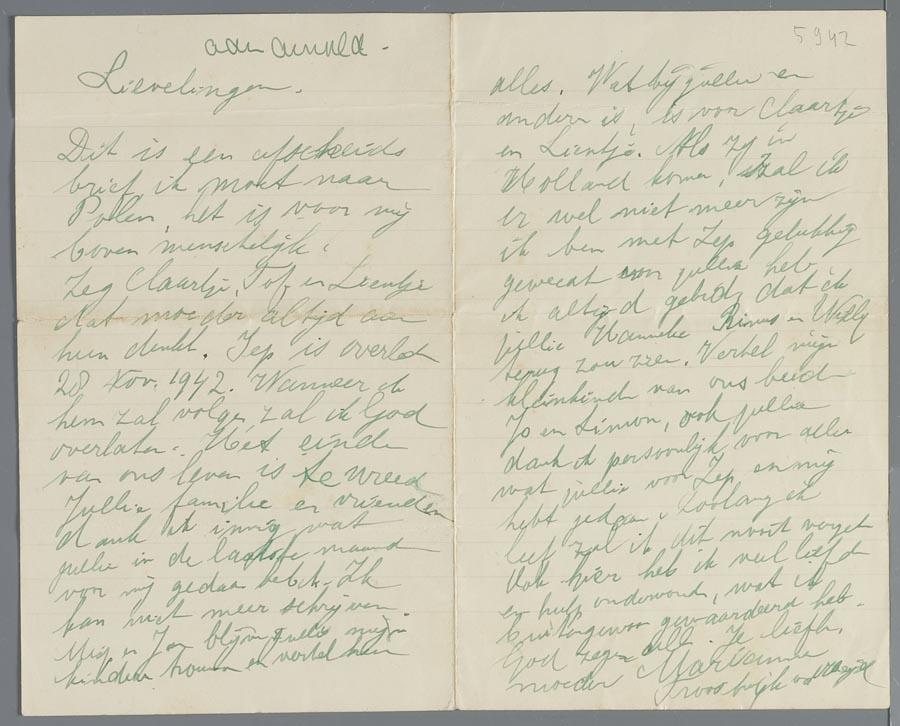 aan Arnold -
Lievelingen.
Dit is een afscheids
brief, ik moet naar
Polen, het is voor mij
boven menschelijk.
Zeg Claartje, Tof en Lientje
dat moeder altijd aan
hun denkt. Jep is overled
28 Nov. 1942. Wanneer ik
hem zal volgen, zal ik God
overlaten. Het einde
van ons leven is te wreed
Jullie familie en vrienden
dank ik innig wat
jullie in de laatste maand
voor mij gedaan hebt. Ik
kan niet meer schrijven.
en Jan blijven jullie mijn
kinderen trouw en vertel hun
5942
alles. Wat bij jullie en
andere is, is voor Claartje
en Lientje. Als zij in
Holland komen, zal ik
er wel niet meer zijn
ik ben met Jep gelukkig
geweest voor jullie heb
ik altijd gebeden dat ik
jullie Hanneke Rinus en Willy
terug zou zien. Vertel mijn
kleinkind van ons beid
Jo en Simon, ook jullie
dank ik persoonlijk voor alles
wat jullie voor Jep en mij
hebt gedaan. Zoolang ik
leef zal ik dit nooit vergeten
Ook hier heb ik veel liefde
en hulp ondervonden, wat ik
buitengewoon gewaardeerd heb.
God zegen alle. Je liefh.
moeder Marianne